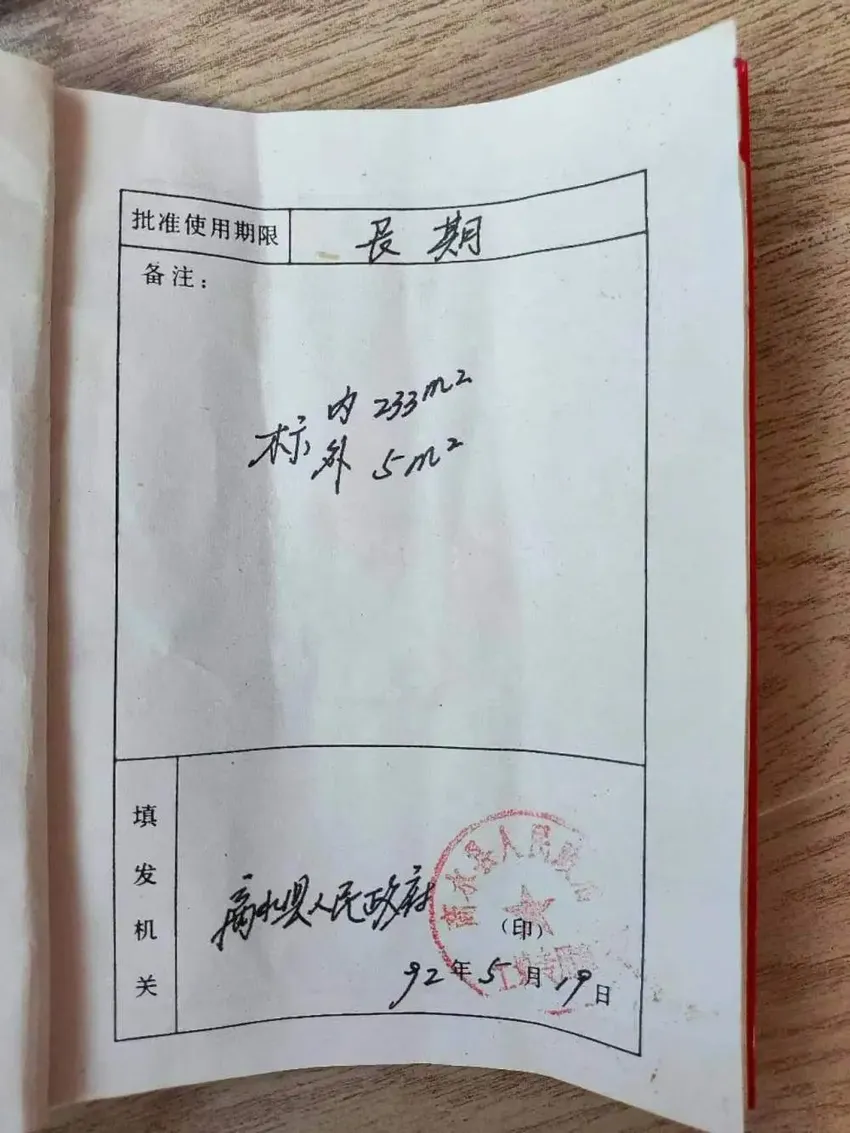 批准使用期限 长期
备注：
标 内 233m2
外 5m2
填发机关
商水县人民政府
商水县人民政府
（印）
92年5月19日